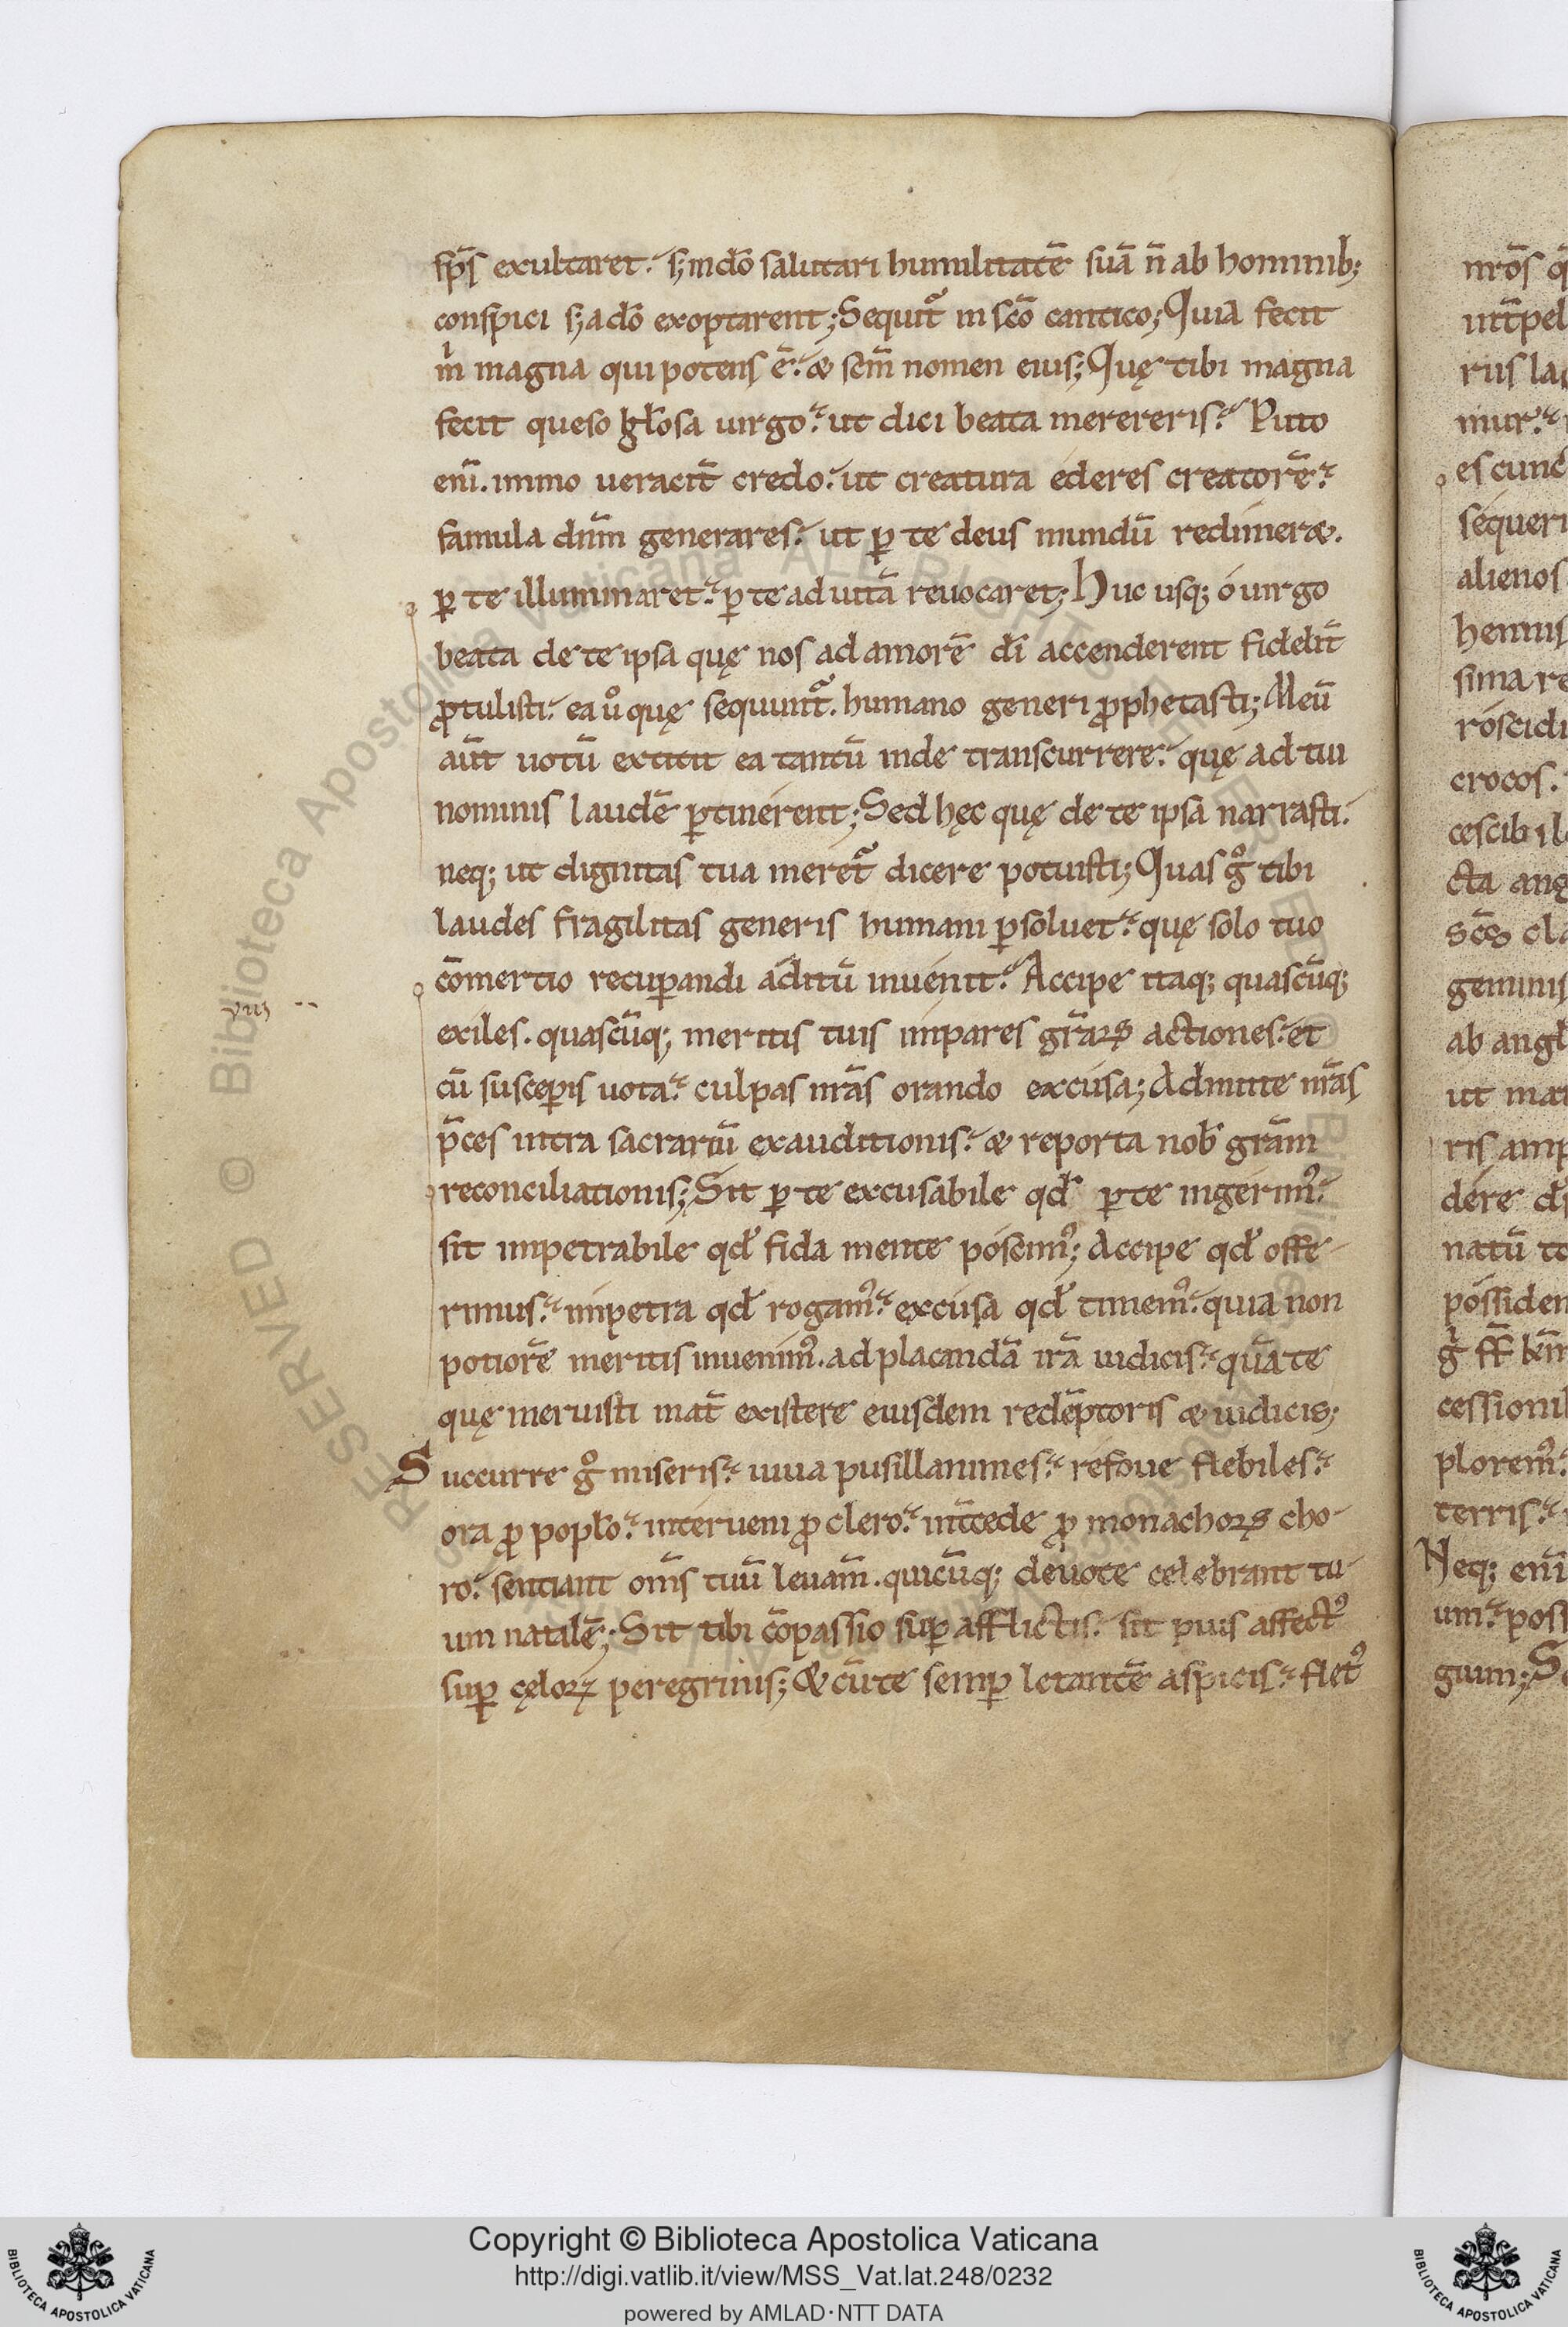 sp̄s exultaret. s; in dō salutari humilitatē suā n̄ ab hominib;
conspici s; a dō exoptarent; Sequit᷑ in sc̄o cantico; Quia fecit
m̄ magna qui potens ē. & sc̄m nomen eius; Quę tibi magna
fecit queso gl̄osa uirgo. ut dici beata merereris. Puto
eni̅. immo ueracit̄ credo. ut creatura ederes creatorē.
famula dn̄m generares. ut ꝑ te deus mundū redimer&.
ꝑ te illuminaret. ꝑ te ad uitā reuocaret; Huc usq; o uirgo
beata de te ipsa quę nos ad amorē di̅ accenderent fidelit̄
ꝓtulisti. ea ů quę sequunt᷑. humano generi ꝓphetasti; Meū
aūt uotū extitit ea tantū inde transcurrere. quę ad tui
nominis laudē ꝑtinerent; Sed hęc quę de te ipsa narrasti.
neq; ut dignitas tua meret᷑ dicere potuisti; Quas g̊ tibi
laudes fragilitas generis humani ꝑsoluet. quę solo tuo
cōmertio recuꝑandi aditū inuenit. Accipe itaq; quascūq;
exiles. quascūq; meritis tuis impares gr̄aꝝ actiones. et
cū susceꝑis uota. culpas nr̄as orando excusa; Admitte nr̄as
p̄ces intra sacrariū exauditionis. & reporta nob̄ gr̄am
reconciliationis; Sit ꝑ te excusabile qd̄ ꝑ te ingerim᷒.
sit impetrabile qd̄ fida mente poscim᷒; Accipe qd̄ offe-
rimus. impetra qd̄ rogam᷒. excusa qd̄ timem᷒. quia non
potiorē meritis inuenim᷒. ad placandā irā iudicis. quā te
quę meruisti mat̄ existere eiusdem redēptoris & iudicis;
Succurre g̊ miseris. iuua pusillanimes. refoue flebiles.
ora ꝓ popl̄o. interueni ꝓ clero. int̄cede ꝓ monachoꝝ cho-
ro. sentiant om̄s tuū leuam̄. quicūq; deuote celebrant tu-
um natalē; Sit tibi cōpassio suꝑ afflictis. sit pius affect᷒
suꝑ cęloꝝ peregrinis; & cū te semꝑ letantē aspicis. flet᷒
nr̄os
rius
mur.
es cunc
sequeri
alienos
crocos.
geminis
ab angl
ris
natū
possiden
terris.
Neq; eni̅
um. poss
guum; S
Copyright © Biblioteca Apostolica Vaticana
http://digi.vatlib.it/view/MSS_Vat.lat.248/0232
powered by AMLAD·NTT DATA
BIBLIOTECA APOSTOLICA VATICANA
BIBLIOTECA APOSTOLICA VATICANA